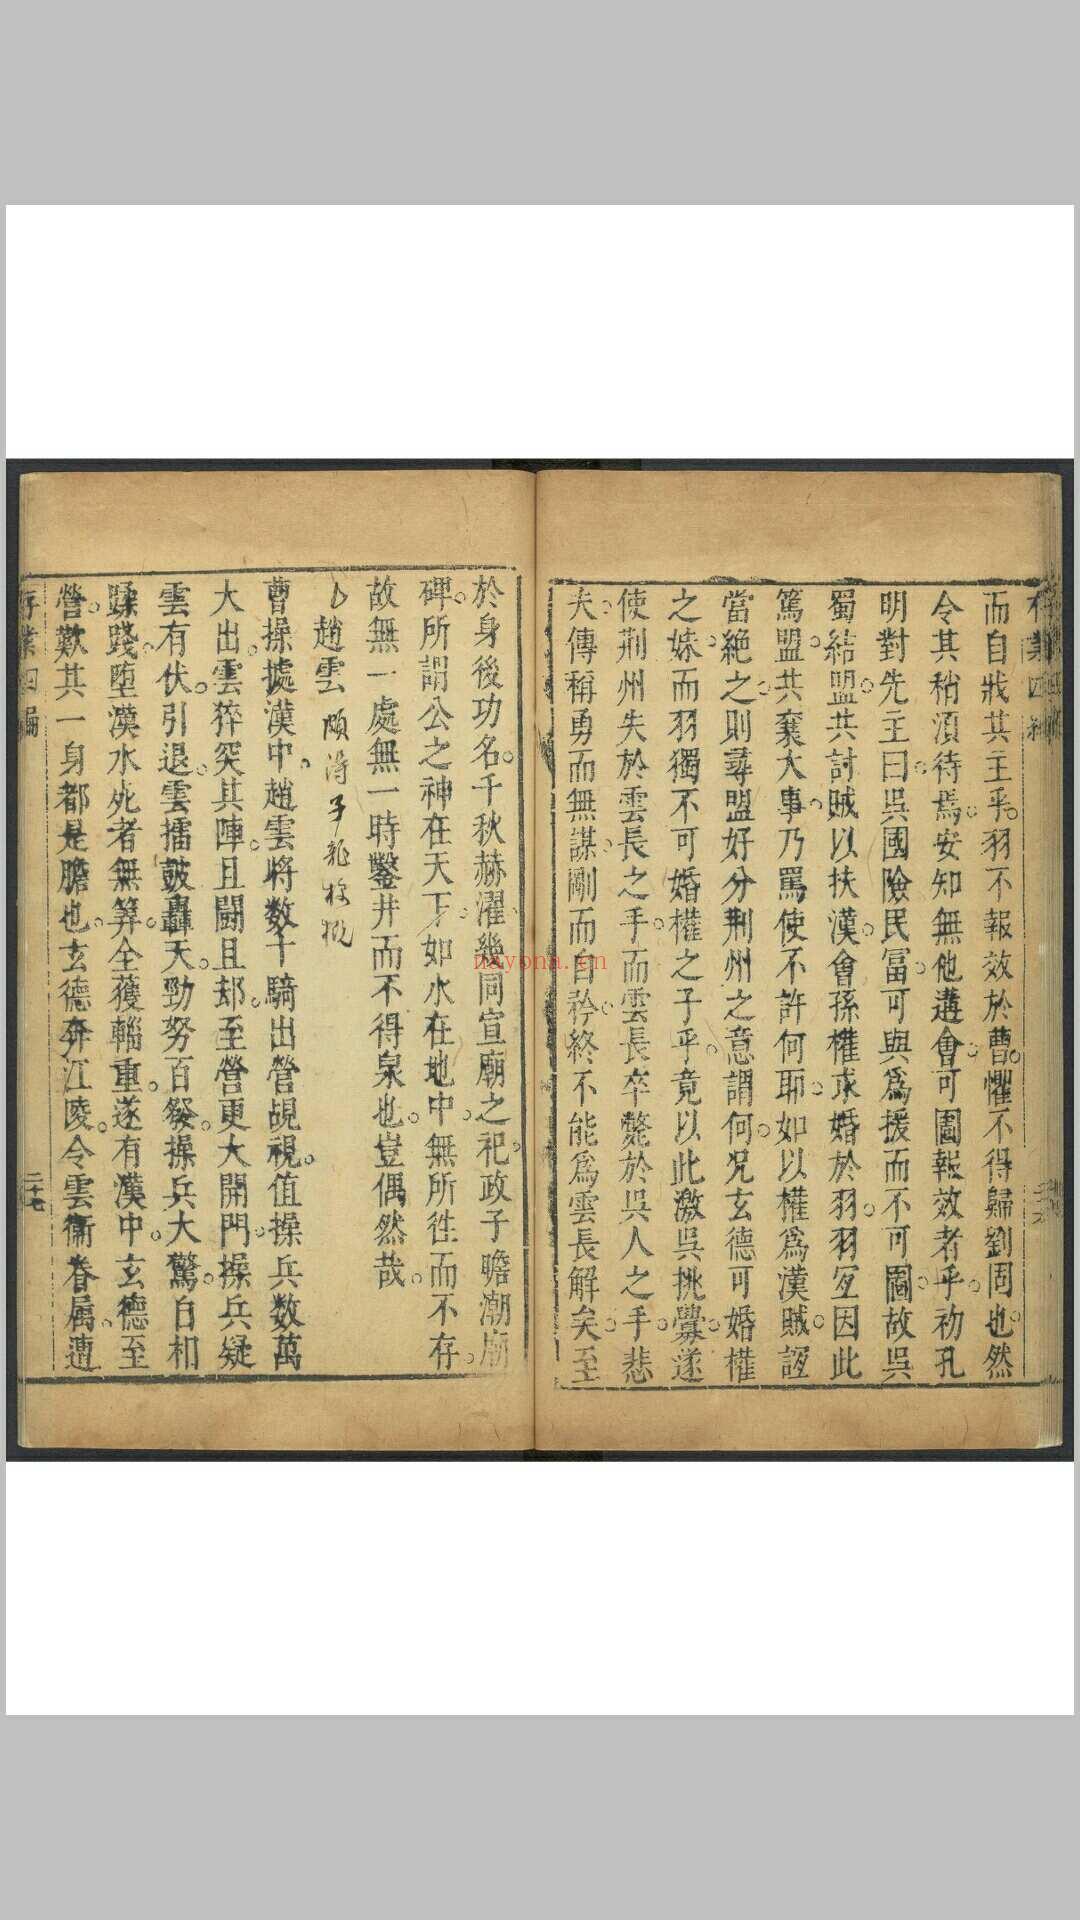 而自戕其主乎羽不報效於曹懼不得歸劉固也然
令其稍須待焉安知無他遘會可圖報效者乎初孔
明對先主曰吳國險民富可與爲援而不可圖故吳
蜀結盟共討賊以扶漢會孫權求婚於羽羽宜因此
篤盟共棄大事乃罵使不許何耶如以權爲漢賊誼
當絕之則尋盟好分荆州之意謂何况玄德可婚權
之妹而羽獨不可婚權之子乎竟以此激吳挑釁遂
使荆州失於雲長之手而雲長卒斃於吳人之手悲
夫傳稱勇而無謀剛而自矜終不能爲雲長解矣至
於身後功名千秋赫濯幾同宣廟之祀政子瞻潮廟
碑所謂公之神在天下如水在地中無所徃而不存
故無一處無一時鑿井而不得泉也豈偶然哉
趙雲 頗得子龍梗概
曹操據漢中趙雲將数十騎出營覘視值操兵数萬
大出雲猝突其陣且鬪且却至營更大開門操兵疑
雲有伏引退雲擂皷轟天勁努百發操兵大驚自相
蹂踐堕漢水死者無筭全獲輜重遂有漢中玄德至
營歎其一身都是膽也玄德奔江陵令雲衛眷属遭
四編
二十七
nayona.cn